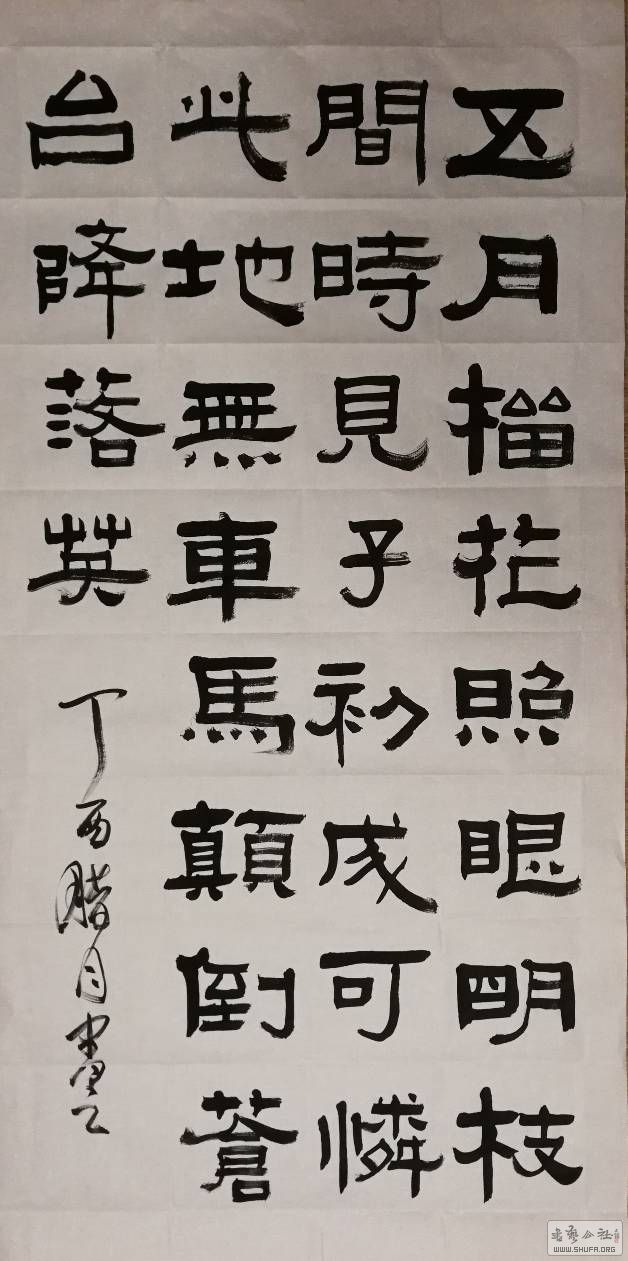 五月榴花照眼明枝
間時見子初成可憐
此地無車馬顛倒蒼
台降落英
丁酉腊月
書藝公社
WWW.SHUFA.ORG